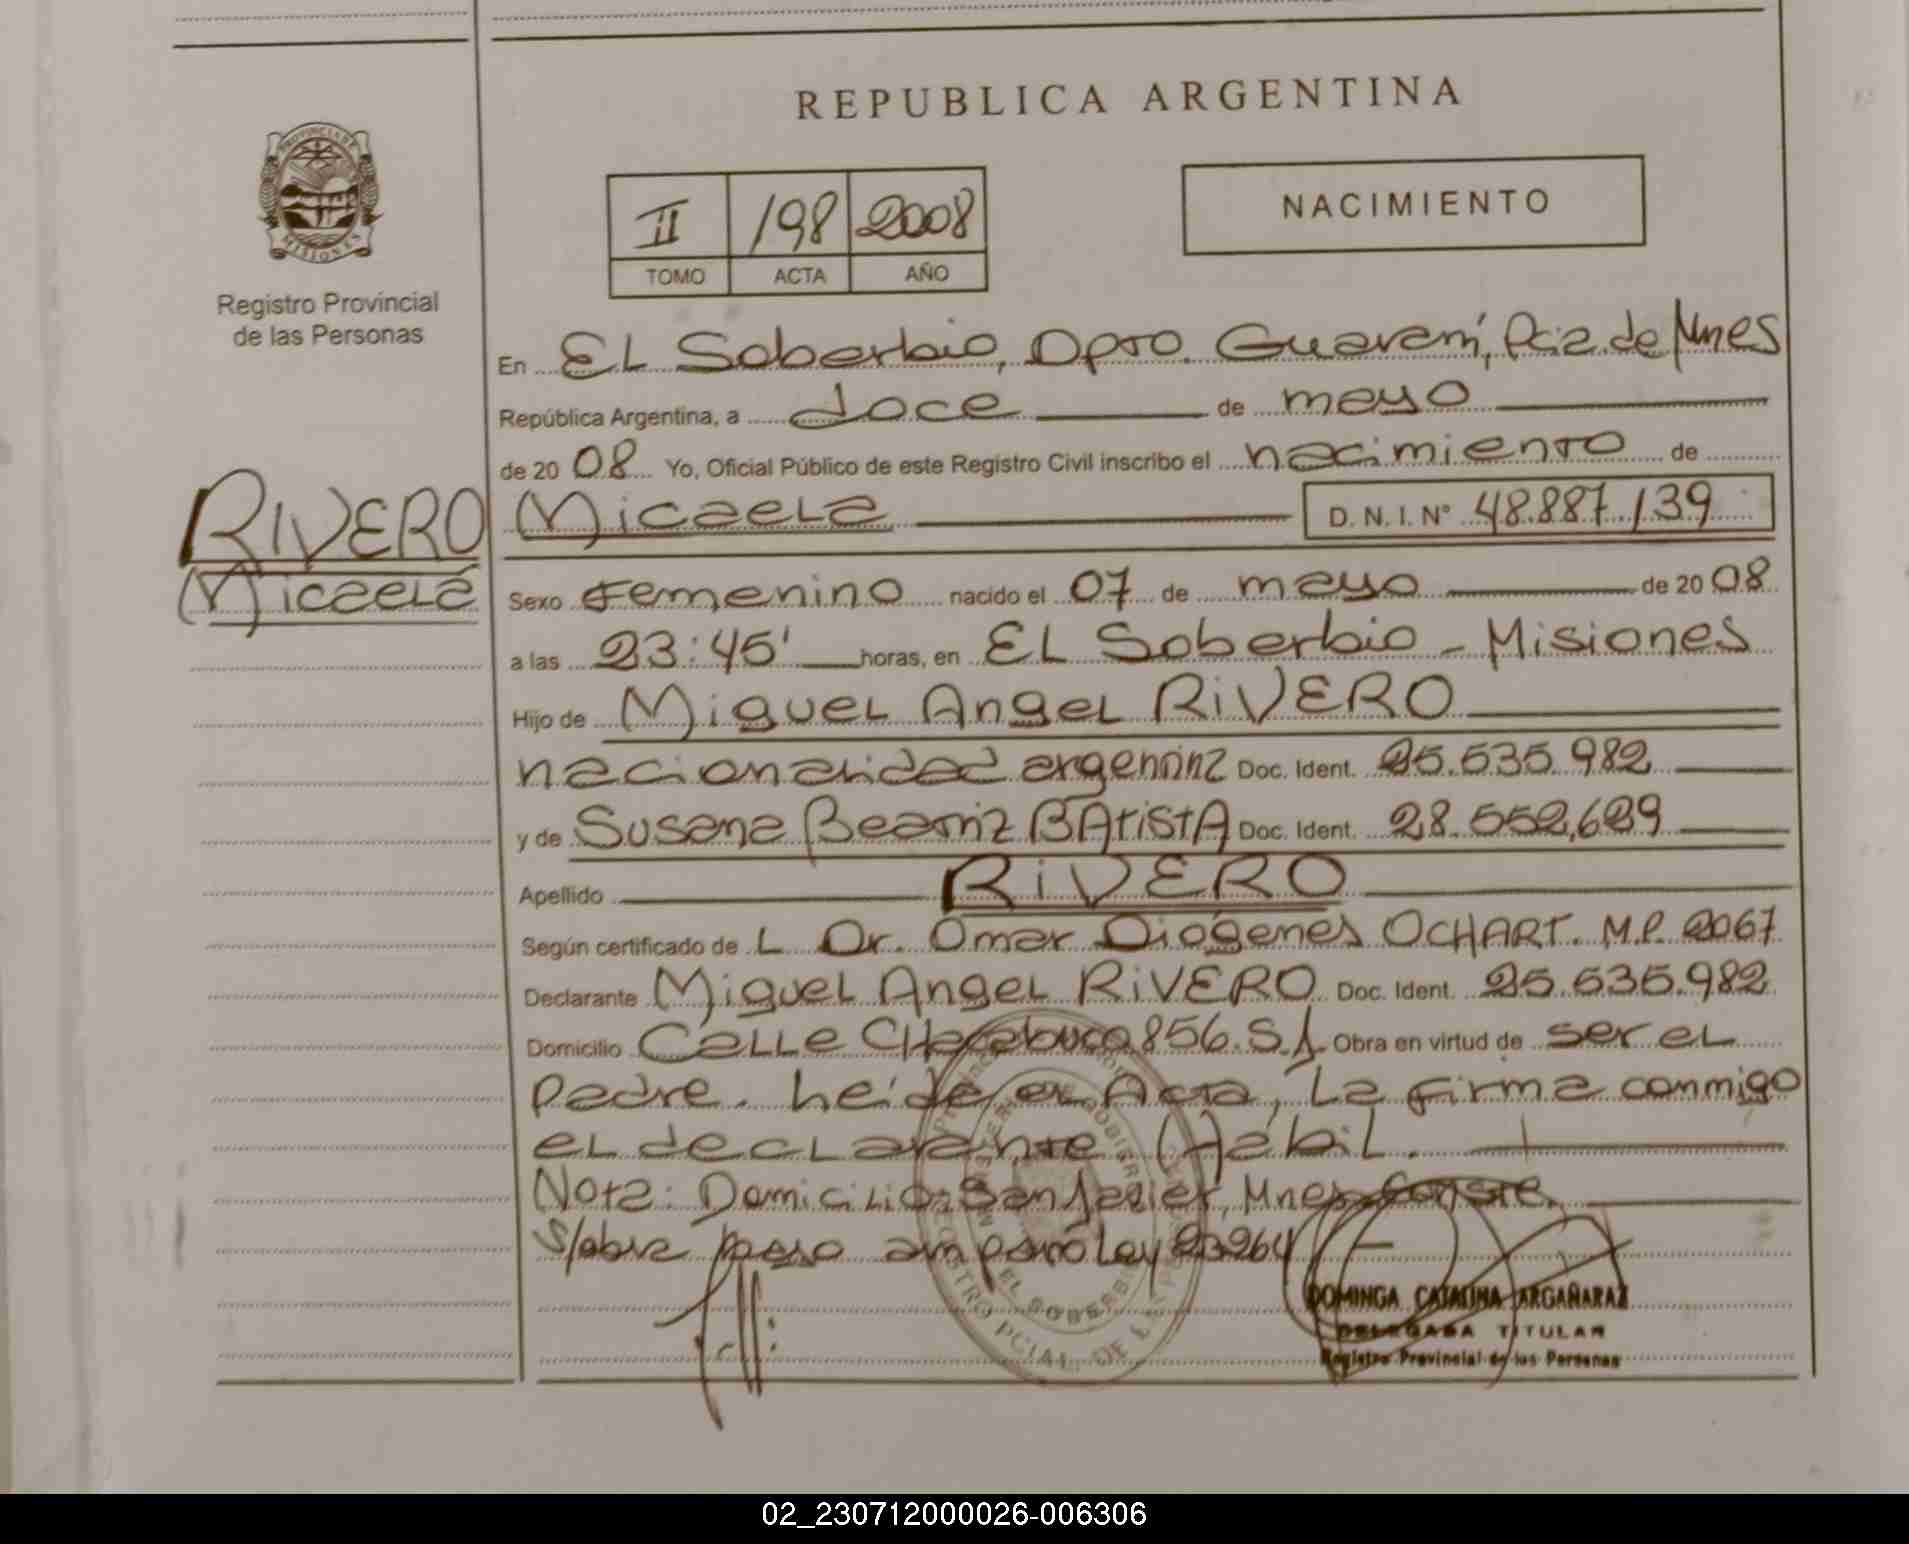 REPUBLICA ARGENTINA
PROVINCIA DE
MISIONES
Registro Provincial
de las Personas
II 198 2008
TOMO ACTA AÑO
NACIMIENTO
En EL Soberbio, Dpto. Guaraní, Pcia. de Mnes
República Argentina, a doce de mayo
de 20 08 Yo, Oficial Público de este Registro Civil inscribo el nacimiento de
RIVERO
Micaela
Micaela D. N. I. N° 48.887.139
Sexo Femenino nacido el 07 de mayo de 20 08
a las 23:45' horas, en EL Soberbio - Misiones
Hijo de Miguel Angel RiVERO
nacionalidad argentina Doc. Ident. 25.535.982
y de Susana Beatriz BAtistA Doc. Ident. 28.552.629
Apellido RiVERO
Según certificado de L Dr. Omar Diógenes OCHART. M.P. 2067
Declarante Miguel Angel RiVERO Doc. Ident. 25.535.982
Domicilio Calle CHacabuco 856. S.J. Obra en virtud de ser el
Padre. Leída el Acta, La firma conmigo
el declarante Hábil.
Nota: Domicilio: San Javier, Mnes. Conste.
S/obra paso amparo Ley 23264
EL SOBERBIO
DOMINGA CATALINA ARGAÑARAZ
DELEGADA TITULAR
Registro Provincial de las Personas
02_230712000026-006306